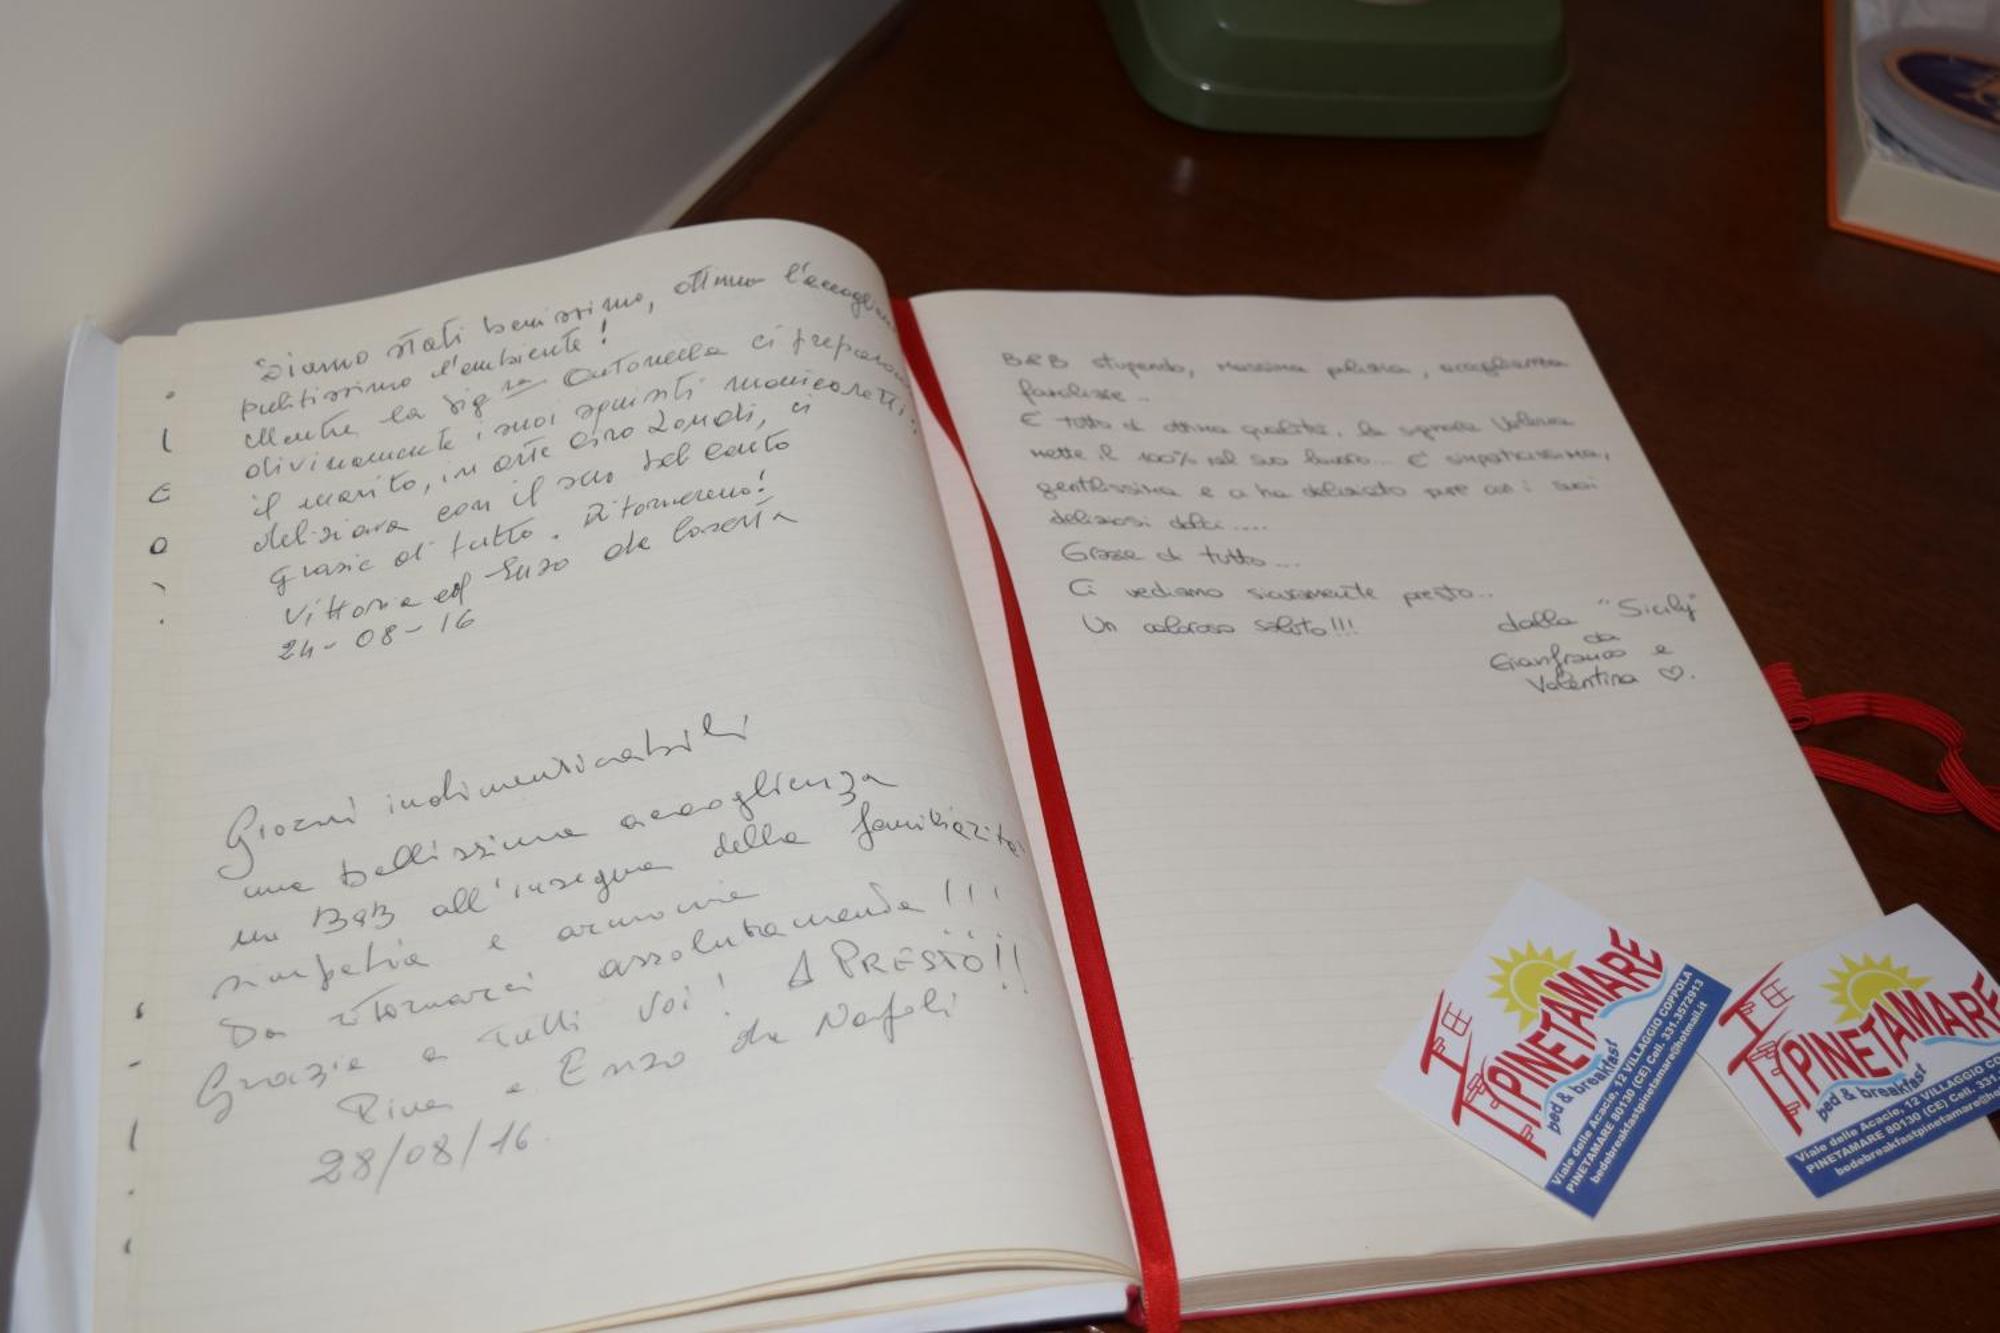 Siamo stati benissimo, ottima l'accoglien
pulitissimo l'ambiente!
Mentre la sig.ra Antonella ci preparava
divinamente i suoi squisiti manicaretti,
il marito, in arte Ciro Zondi, ci
deliziava con il suo bel canto
grazie di tutto. Ritorneremo!
Vittoria ed Enzo da Caserta
24-08-16
Giorni indimenticabili
una bellissima accoglienza
un B&B all'insegna della familiarità
simpatia e armonia
Da ritornarci assolutamente!!!
Grazie a tutti voi! A PRESTO!!
Pina e Enzo da Napoli
28/08/16
B&B stupendo, massima pulizia, accoglienza
favolosa..
E' tutto di ottima qualità, la signora
mette il 100% nel suo lavoro... E' simpaticissima,
gentilissima e ci ha deliziato pure con i suoi
deliziosi dolci.....
Grazie di tutto...
Ci vediamo sicuramente presto...
Un caloroso saluto!!!
dalla "Sicily"
da
Gianfranco e
Valentina ♡.
PINETAMARE
bed & breakfast
Viale delle Acacie, 12 VILLAGGIO COPPOLA
PINETAMARE 80130 (CE) Cell. 331.3572913
bedebreakfastpinetamare@hotmail.it
PINETAMARE
bed & breakfast
Viale delle Acacie, 12 VILLAGGIO CO
PINETAMARE 80130 (CE) Cell. 331.
bedebreakfastpinetamare@ho